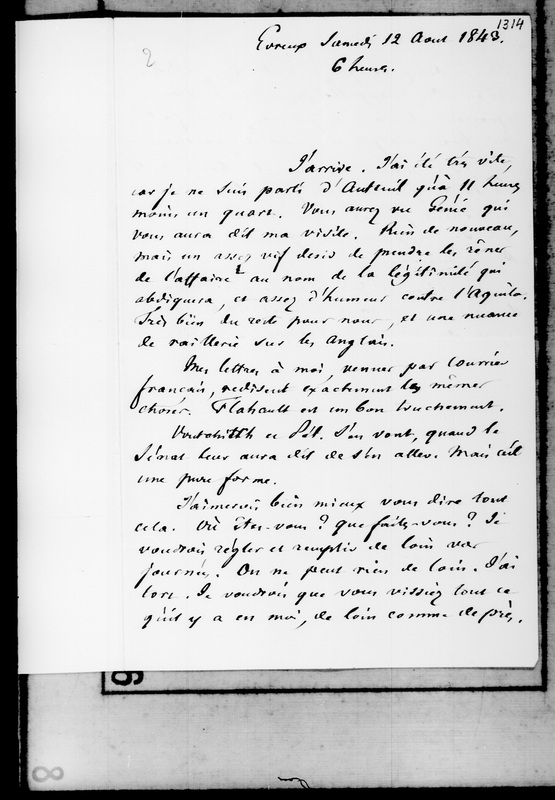 1314
2
Evreux Samedi 12 Aout 1843.
6 heures.
J'arrive. J'ai été très vite,
car je ne suis parti d'Auteuil qu'à 11 heures
moins un quart. Vous aurez vu Génie qui
vous aura dit ma visite. Rien de nouveau,
mais un assez vif desir de prendre les rênes
de l'affaire au nom de la légitimité qui
abdiquera, et assez d'humeur contre l'Aquila.
Très bien du reste pour nous, et une nuance
de raillerie sur les Anglais.
Mes lettres à moi, venues par courrier
français, redisent exactement les mêmes
choses. Flahault est un bon truchement.
et Pél. s'en vont, quand le
Sénat leur aura dit de s'en aller. Mais c'est
une pure forme.
J'aimerois bien mieux vous dire tout
cela. Où êtes-vous ? que faites-vous ? Je
voudrois régler et remplir de loin vos
journées. On ne peut rien de loin. J'ai
tort. Je voudrois que vous vissiez tout ce
qu'il y a en moi, de loin comme de près.
8